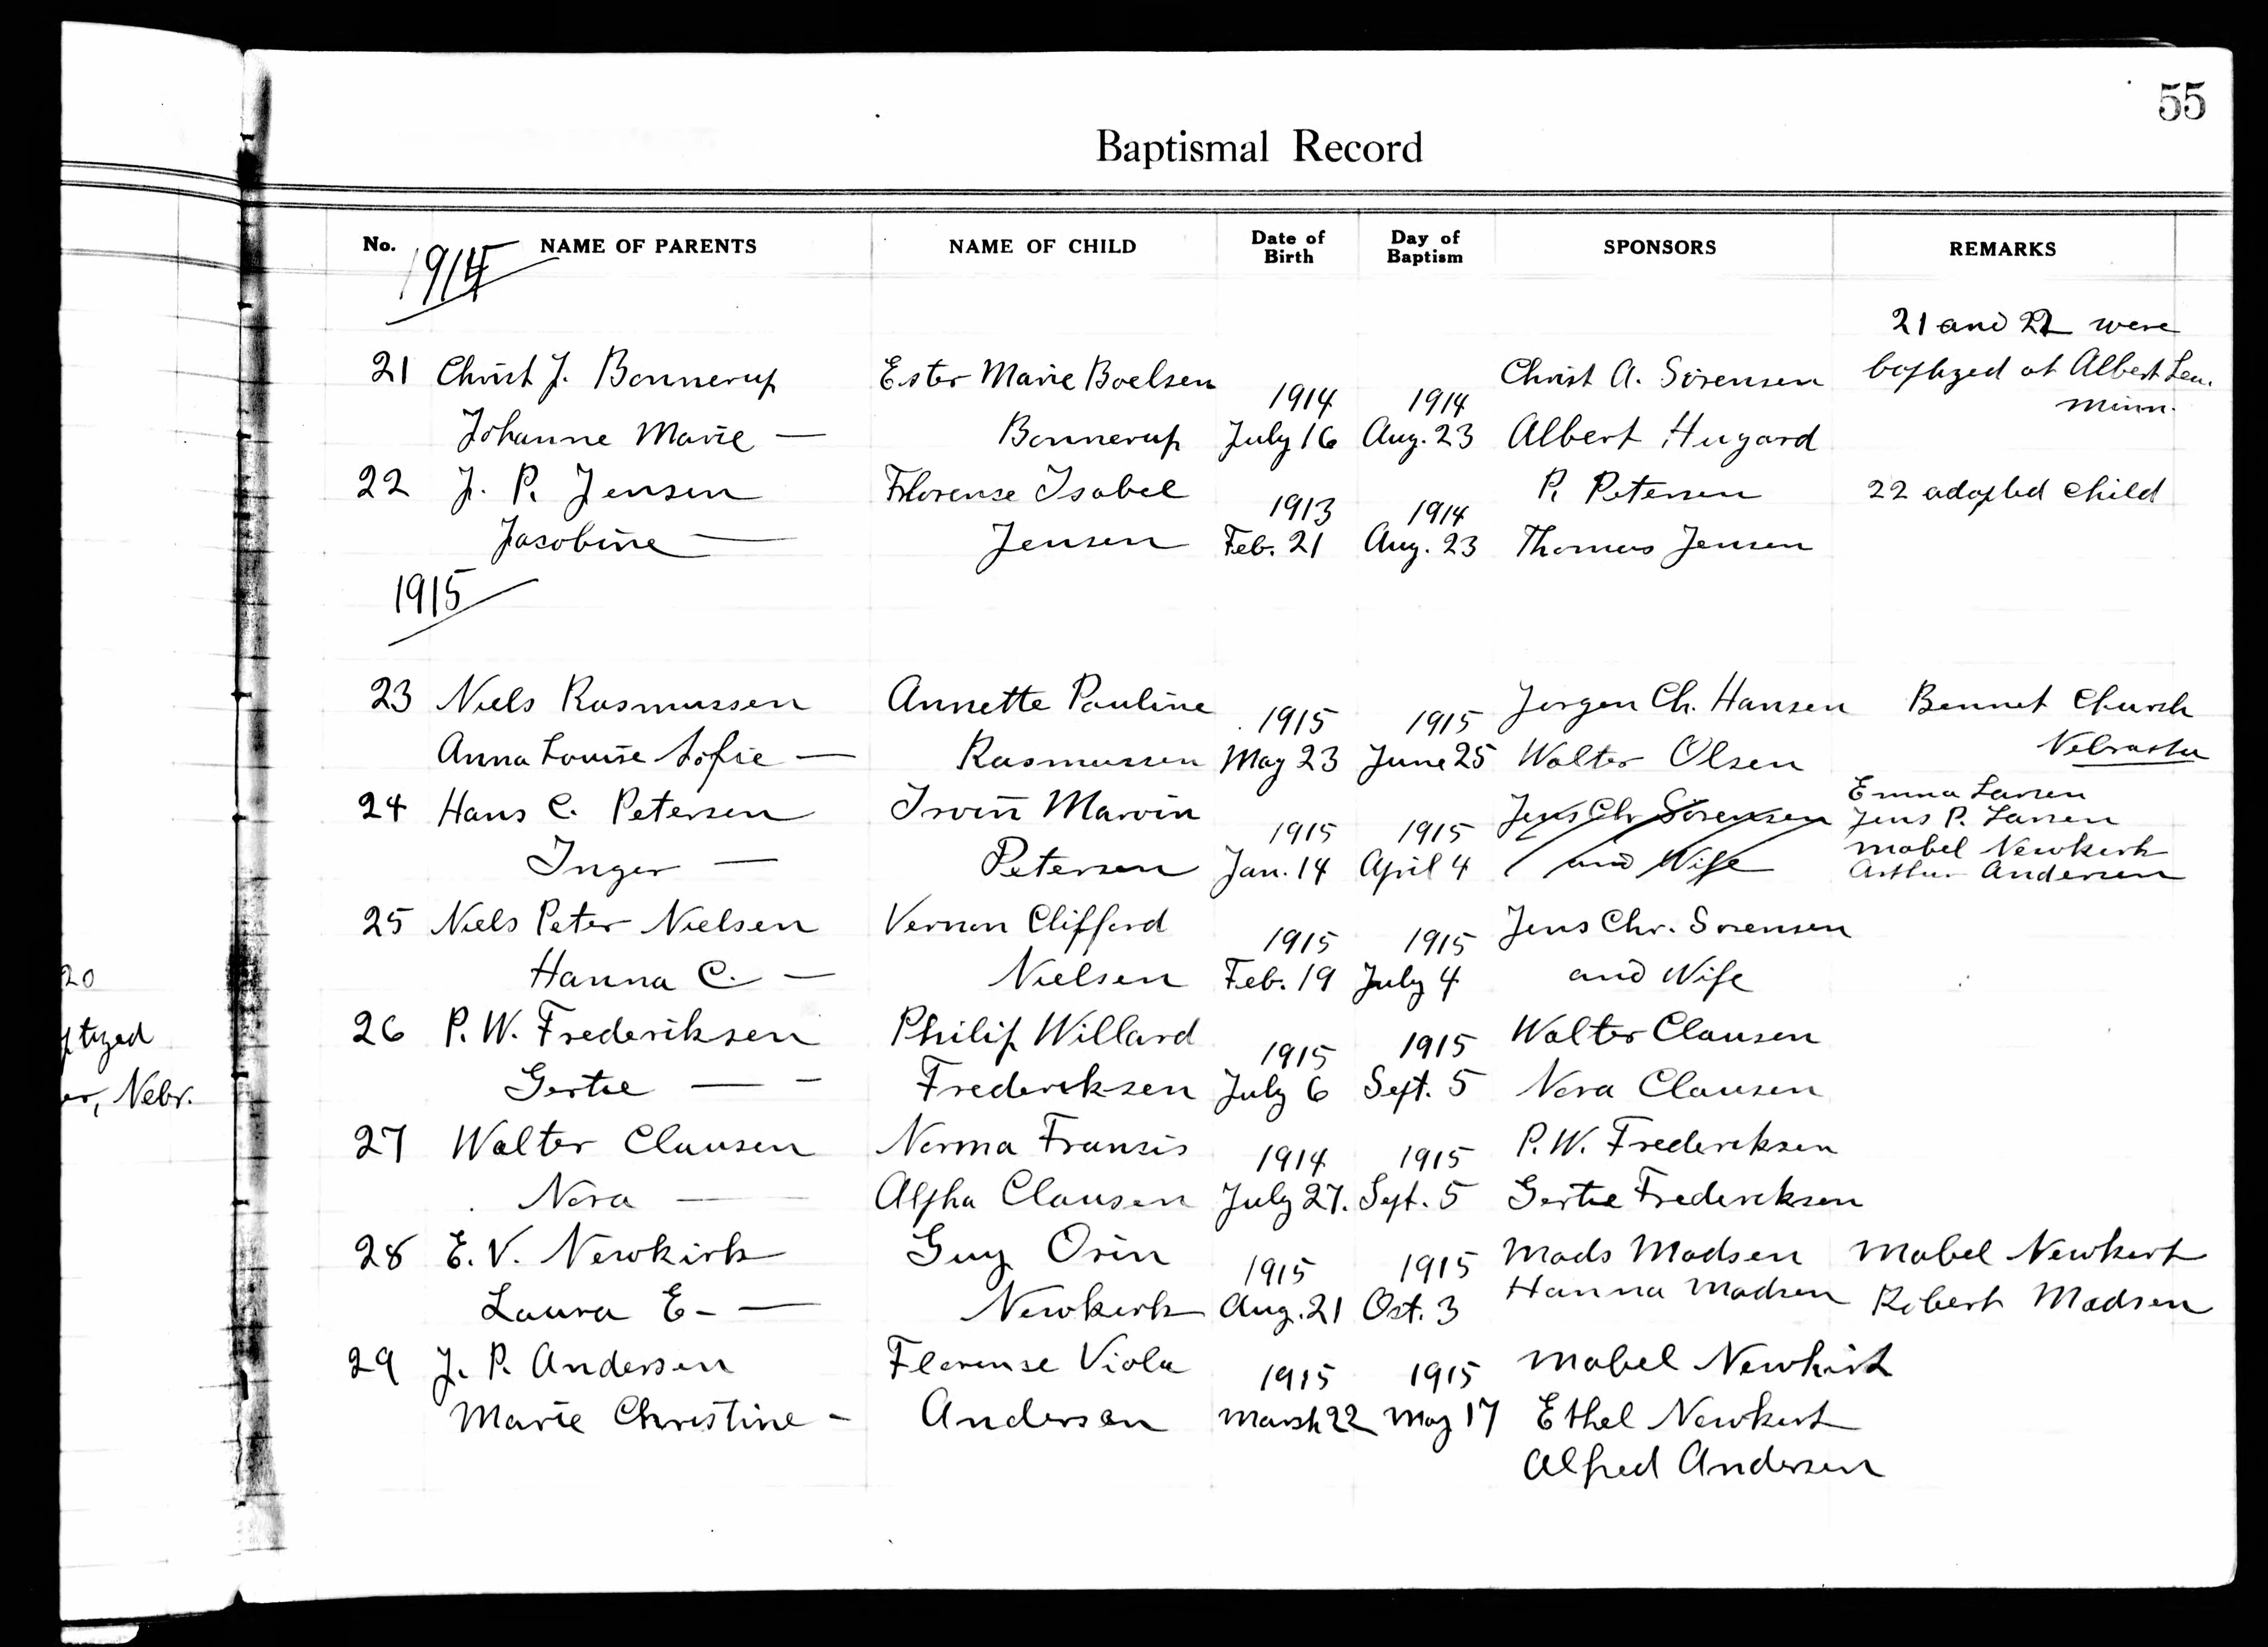 55
Baptismal Record
No. NAME OF PARENTS NAME OF CHILD Date of Birth Day of Baptism SPONSORS REMARKS
1914
21 and 22 were
21 Christ J. Bonnerup Ester Marie Boelsen 1914 1914 Christ A. Sörensen baptized at Albert Lea.
Minn.
Johanne Marie — Bonnerup July 16 Aug. 23 Albert Hugard
22 J. P. Jensen Florense Isabel 1913 1914 P. Petersen 22 adopted child
Jacobine — Jensen Feb. 21 Aug. 23 Thomas Jensen
1915
23 Niels Rasmussen Annette Pauline 1915 1915 Jorgen Ch. Hansen Bennet Church
Anna Louise Sofie — Rasmussen May 23 June 25 Walter Olsen Nebraska
24 Hans C. Petersen Irvin Marvin 1915 1915 Jens Chr Sorensen Emma Larsen
Jens P. Larsen
Inger — Petersen Jan. 14 April 4 and Wife Mabel Newkirk
Arthur Andersen
25 Niels Peter Nielsen Vernon Clifford 1915 1915 Jens Chr. Sorensen
Hanna C. — Nielsen Feb. 19 July 4 and Wife
20
26 P. W. Frederiksen Philip Willard 1915 1915 Walter Clausen
ptized
Gertie — – Frederiksen July 6 Sept. 5 Nora Clausen
er, Nebr.
27 Walter Clausen Norma Fransis 1914 1915 P. W. Frederiksen
Nora — Alpha Clausen July 27. Sept. 5 Gertie Frederiksen
28 E. V. Newkirk Guy Orin 1915 1915 Mads Madsen Mabel Newkirk
Laura E- — Newkirk Aug. 21 Oct. 3 Hanna Madsen Robert Madsen
29 J. P. Andersen Florense Viola 1915 1915 Mabel Newkirk
Marie Christine – Andersen March 22 May 17 Ethel Newkirk
Alfred Andersen